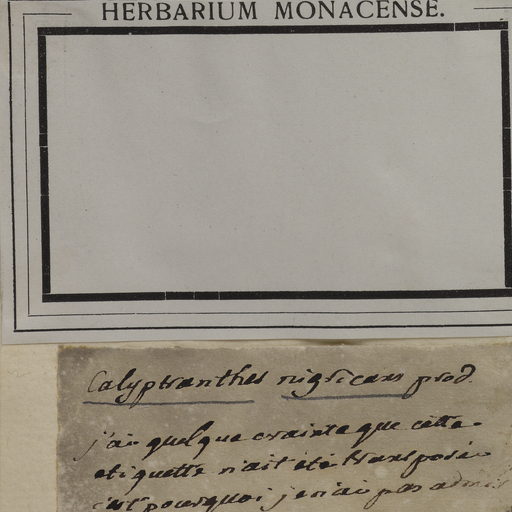 HERBARIUM MONACENSE.
Calyptranthes nigricans prod.
j'ai quelque crainte que cette
etiquette n'ait été transposée
c'est pourquoi je n'ai pas admis